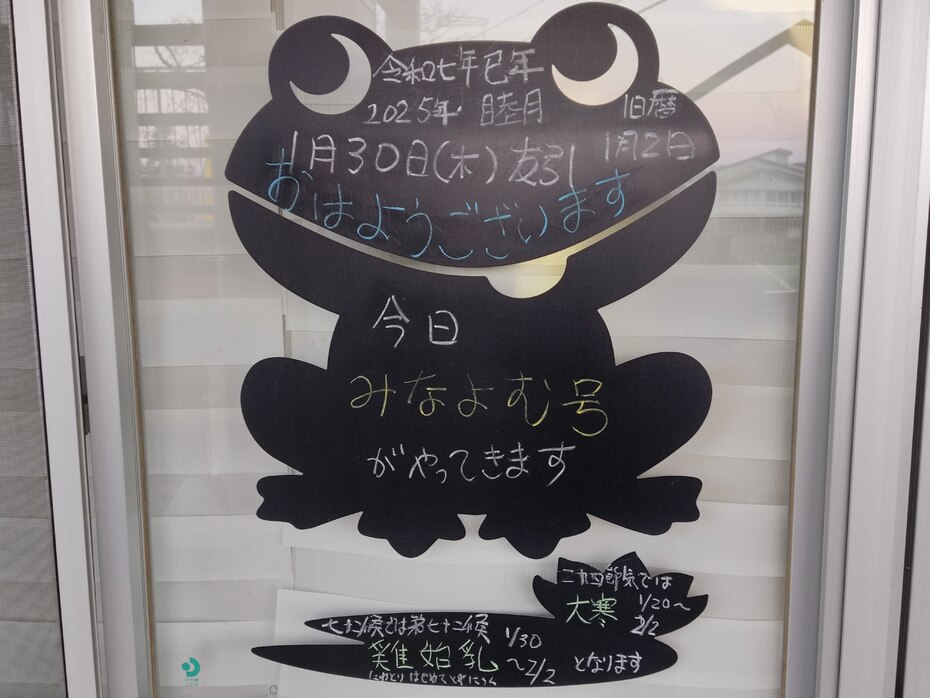 令和七年巳年
2025年 睦月
旧暦
1月2日
1月30日(木)友引
おはようございます
今日
みなよむ号
がやってきます
二十四節気では
大寒 1/20〜
2/2
七十二候では第七十二候
雞始乳 1/30
〜2/2 となります
にわとり はじめて とやにつく